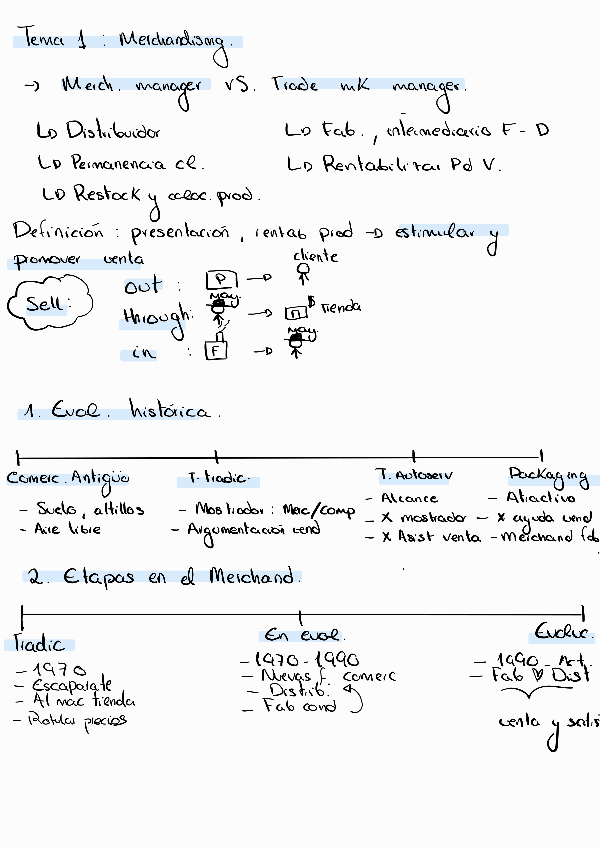 Tema 1 : Merchandising.
→ Merch. manager VS. Trade mK manager.
↳ Distribuidor ↳ Fab., intermediario F - D
↳ Permanencia cl. ↳ Rentabilizar Pd V.
↳ Restock y coloc. prod.
Definición : presentación, rentab prod → estimular y
promover venta
cliente
Sell: out : P →
through: May. → Π $ Tienda
in : F → May.
1. Evol. histórica.
Comerc. Antiguo T. tradic. T. Autoserv Packaging
- Suelo, altillos - Mostrador : Merc/comp - Alcance - Atractivo
- Aire libre - Argumentación vend - X mostrador - X ayuda vend
- X Asist venta - Merchand fab
2. Etapas en el Merchand.
Tradic En evol. Evoluc.
- 1970 - 1970 - 1990 - 1990 - Act.
- Escaparate - Nuevas f. comerc - Fab ♡ Dist
- Almac tienda - Distrib.
- Rotular precios - Fab cond
venta y satis